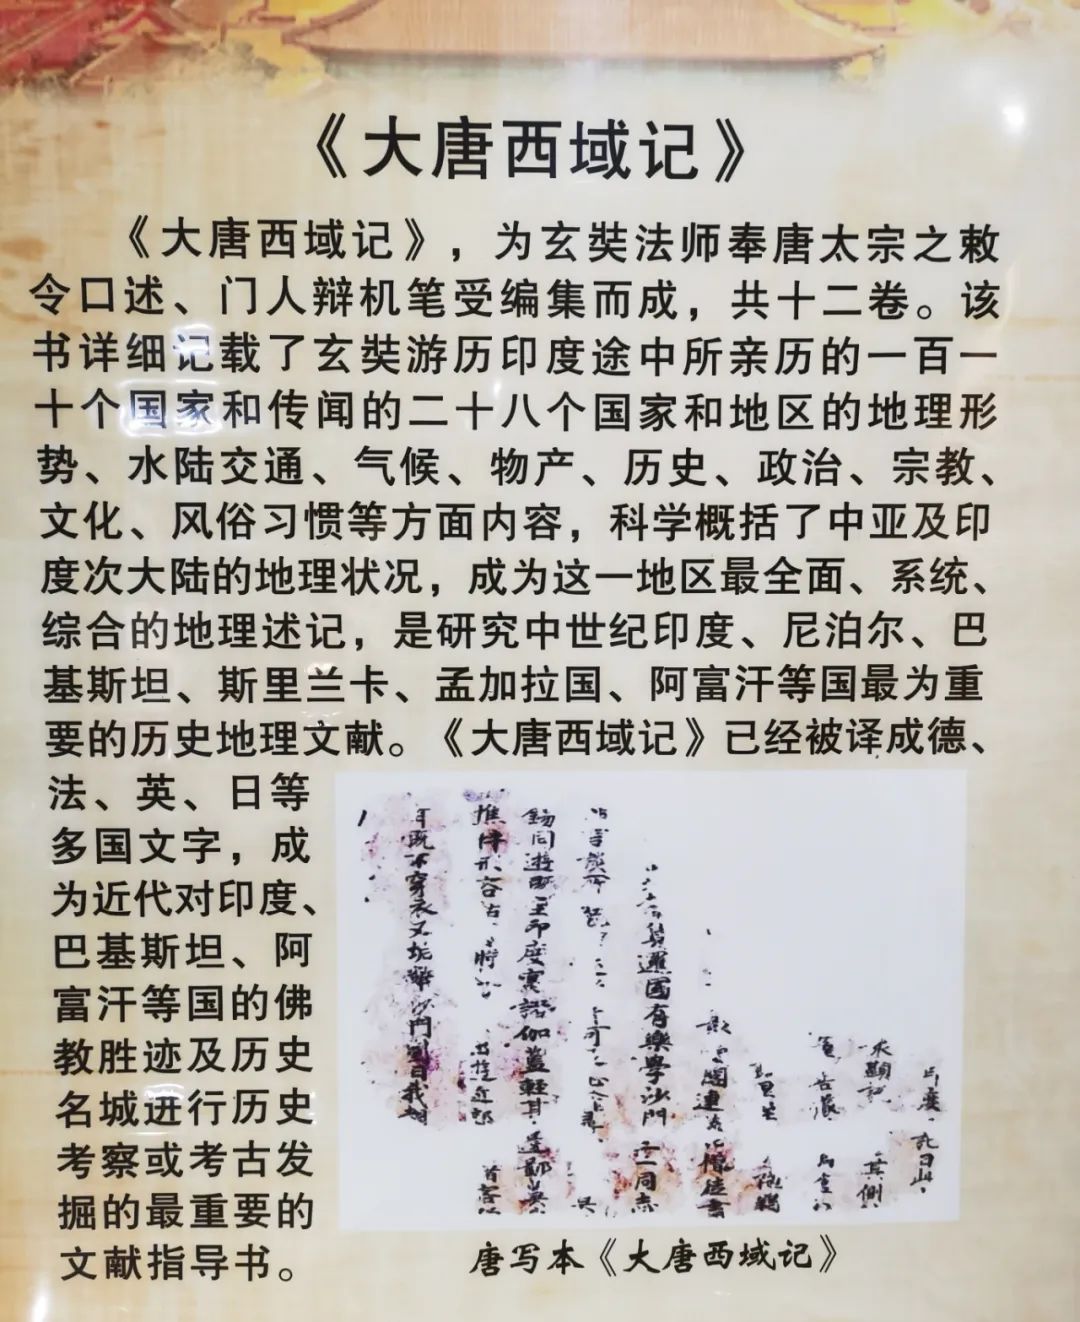 《大唐西域记》
《大唐西域记》，为玄奘法师奉唐太宗之敕
令口述、门人辩机笔受编集而成，共十二卷。该
书详细记载了玄奘游历印度途中所亲历的一百一
十个国家和传闻的二十八个国家和地区的地理形
势、水陆交通、气候、物产、历史、政治、宗教、
文化、风俗习惯等方面内容，科学概括了中亚及印
度次大陆的地理状况，成为这一地区最全面、系统、
综合的地理述记，是研究中世纪印度、尼泊尔、巴
基斯坦、斯里兰卡、孟加拉国、阿富汗等国最为重
要的历史地理文献。《大唐西域记》已经被译成德、
法、英、日等
多国文字，成
为近代对印度、
巴基斯坦、阿
富汗等国的佛
教胜迹及历史
名城进行历史
考察或考古发
掘的最重要的
文献指导书。
印度
求顯記 其側
國有樂學沙門 二同志
同遊 至印度 伽藍輕其
推 形容 時
既不穿衣又 沙門 自我
唐写本《大唐西域记》